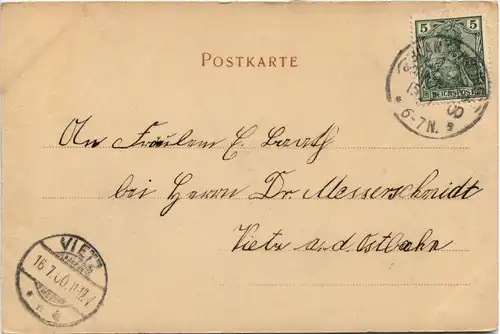 5
REICHSPOST
POSTKARTE
6-7N.
An Fräulein E. Barth
bei Herrn Dr. Messerschmidt
Vietz a.d. Ostbahn
VIETZ
16.7.00.11-12.V